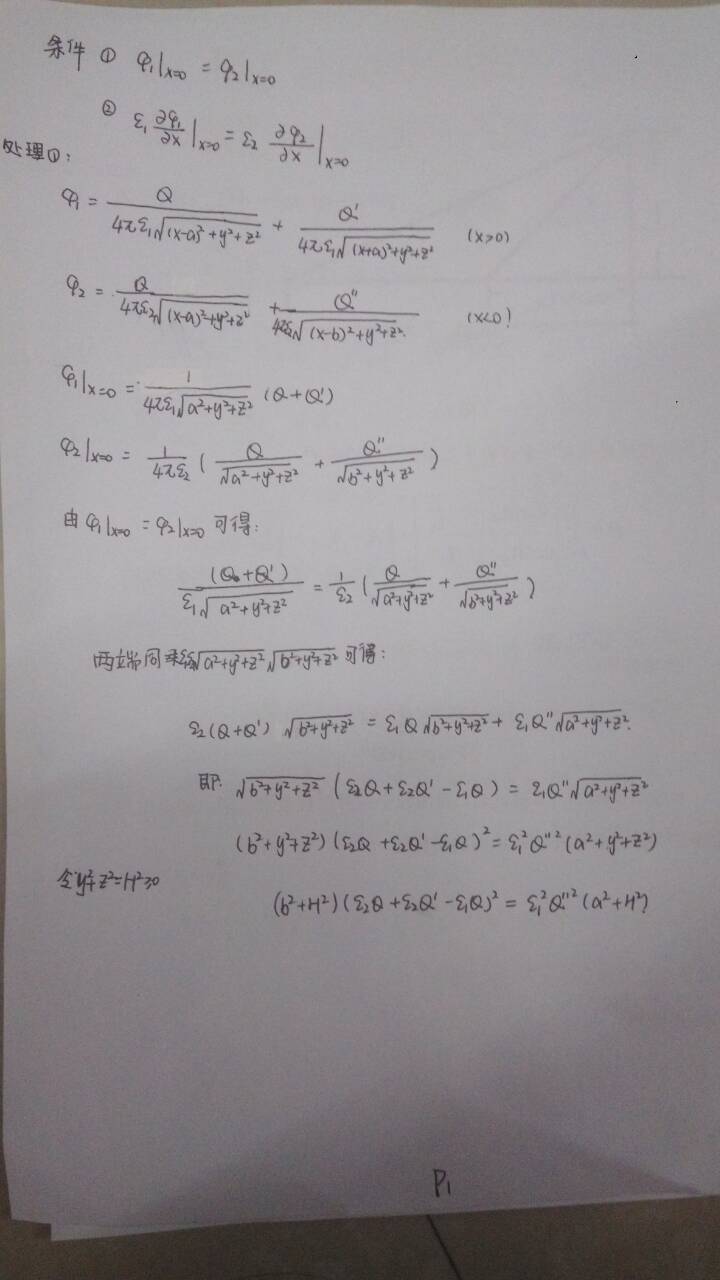 条件 ① φ₁|ₓ₌₀ = φ₂|ₓ₌₀
② ε₁ ∂φ₁/∂x |ₓ₌₀ = ε₂ ∂φ₂/∂x |ₓ₌₀
处理①:
φ₁ = Q/(4πε₁√((x-a)²+y²+z²)) + Q'/(4πε₁√((x+a)²+y²+z²)) (x>0)
φ₂ = Q/(4πε₂√((x-a)²+y²+z²)) + Q''/(4πε₂√((x-b)²+y²+z²)) (x<0)
φ₁|ₓ₌₀ = 1/(4πε₁√(a²+y²+z²)) (Q+Q')
φ₂|ₓ₌₀ = 1/(4πε₂) ( Q/√(a²+y²+z²) + Q''/√(b²+y²+z²) )
由 φ₁|ₓ₌₀ = φ₂|ₓ₌₀ 可得:
(Q+Q')/(ε₁√(a²+y²+z²)) = 1/ε₂ ( Q/√(a²+y²+z²) + Q''/√(b²+y²+z²) )
两端同乘ε₁ε₂√(a²+y²+z²) √(b²+y²+z²) 可得:
ε₂(Q+Q') √(b²+y²+z²) = ε₁Q√(b²+y²+z²) + ε₁Q''√(a²+y²+z²)
即: √(b²+y²+z²) (ε₂Q+ε₂Q'-ε₁Q) = ε₁Q''√(a²+y²+z²)
(b²+y²+z²)(ε₂Q+ε₂Q'-ε₁Q)² = ε₁²Q''²(a²+y²+z²)
令y²+z²=H²≥0
(b²+H²)(ε₂Q+ε₂Q'-ε₁Q)² = ε₁²Q''²(a²+H²)
P₁